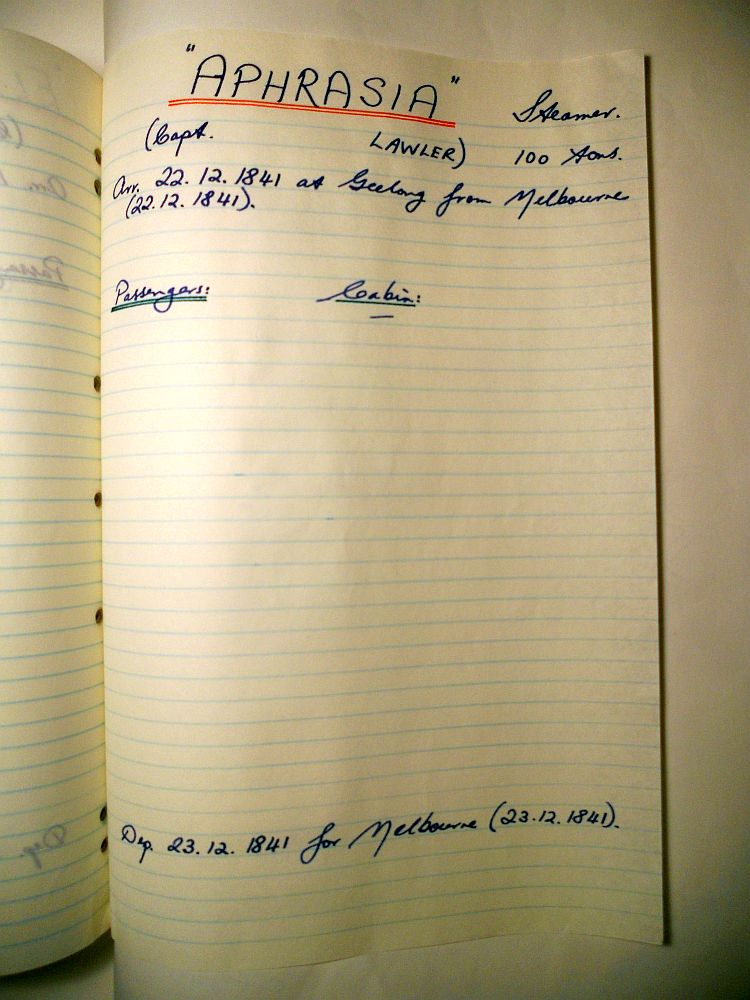 "APHRASIA" Steamer.
(Capt. LAWLER) 100 Tons.
Arr. 22.12.1841 at Geelong from Melbourne
(22.12.1841).
Passengers: Cabin:
—
Dep. 23.12.1841 for Melbourne (23.12.1841).